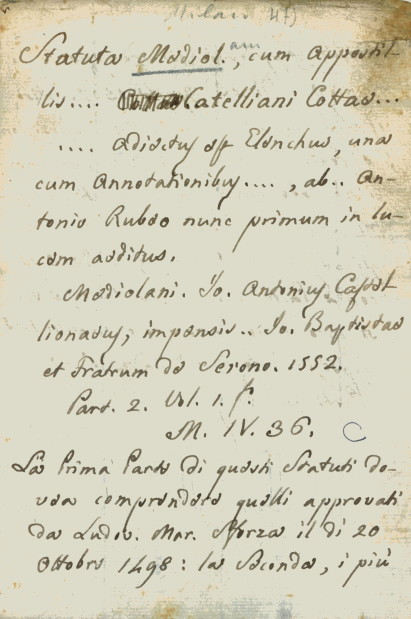 Milano 47)
Statuta Mediol.am, cum Appostil-
lis.... Catelliani Cottae...
.... adiectus est Elenchus, una
cum Annotationibus...., ab.. An-
tonio Rubeo nunc primum in lu-
cem aeditus.
Mediolani. Io. Antonius Castel-
lionaeus, impensis.. Io. Baptistae
et Fratrum de Serono. 1552.
Part. 2. Vol. 1. f.
M. IV. 36.
La Prima Parte di questi Statuti do-
vea comprendere quelli approvati
da Ludov. Mar. Sforza il dì 20
Ottobre 1498: la Seconda, i più